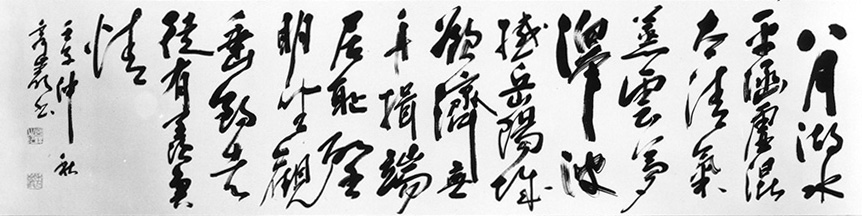 八月湖水
平涵虛混
太清氣
蒸雲夢
澤波
撼岳陽城
欲濟無
舟楫端
居恥聖
明坐觀
垂釣者
徒有羨魚
情
仲秋